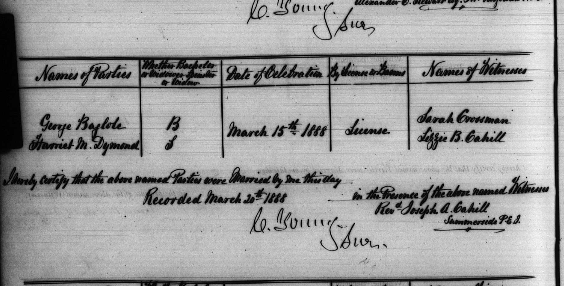 C. Young
Surr.
Names of Parties
Whether Bachelor or Widower Spinster or Widow
Date of Celebration
By License or Banns
Names of Witnesses
George Baglole
B
March 15th 1888
License
Sarah Crossman
Harriet M. Dymond
S
Lizzie B. Cahill
I hereby certify that the above named Parties were Married by me this day
in the Presence of the above named Witnesses
Recorded March 20th 1888
Revd Joseph A. Cahill
Summerside P.E.I.
C. Young
Surr.